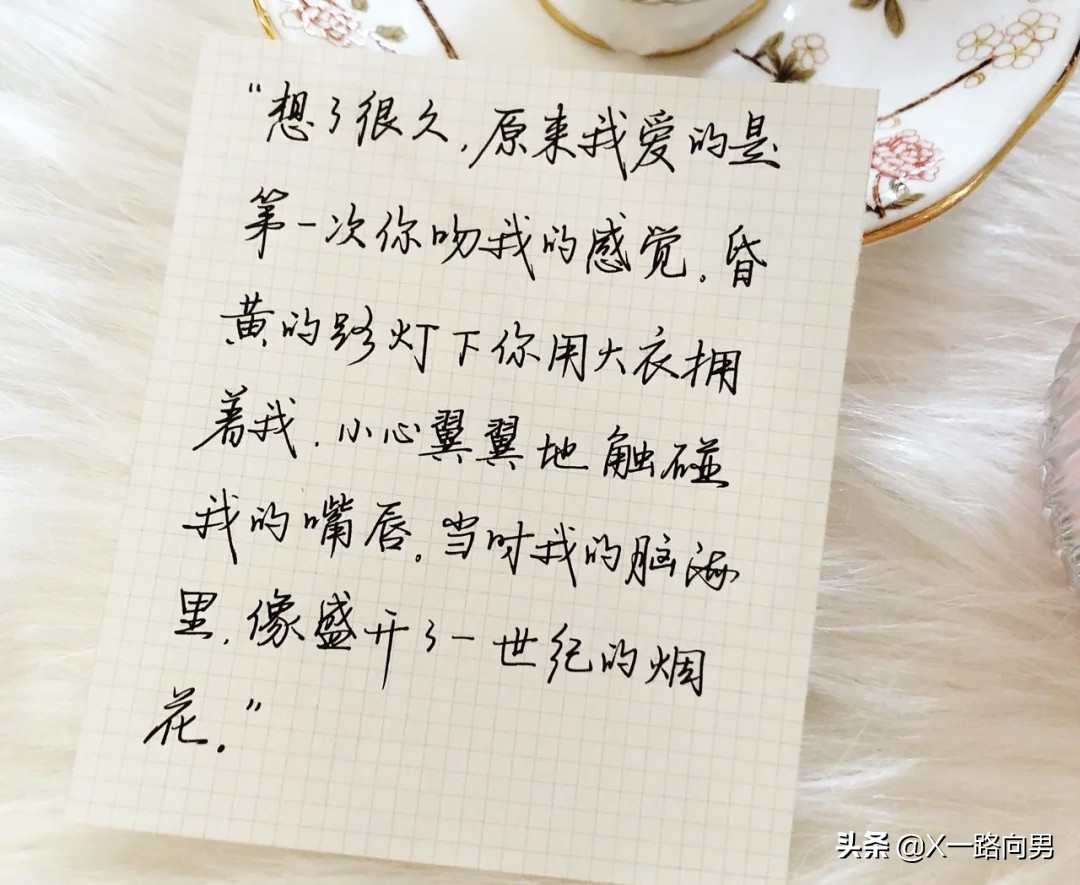 “想了很久,原来我爱的是
第一次你吻我的感觉。昏
黄的路灯下你用大衣拥
着我,小心翼翼地触碰
我的嘴唇。当时我的脑海
里,像盛开了一世纪的烟
花。”
头条 @X一路向男